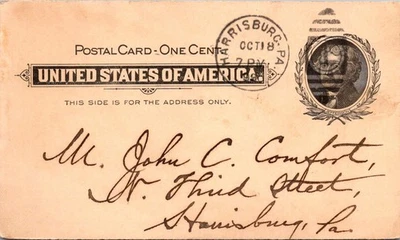 POSTAL CARD - ONE CENT.
HARRISBURG, PA.
OCT 18
7 PM
UNITED STATES OF AMERICA.
THIS SIDE IS FOR THE ADDRESS ONLY.
Mr. John C. Comfort,
N. Third Street,
Harrisburg, Pa.